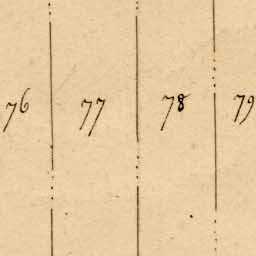 76 77 78 79